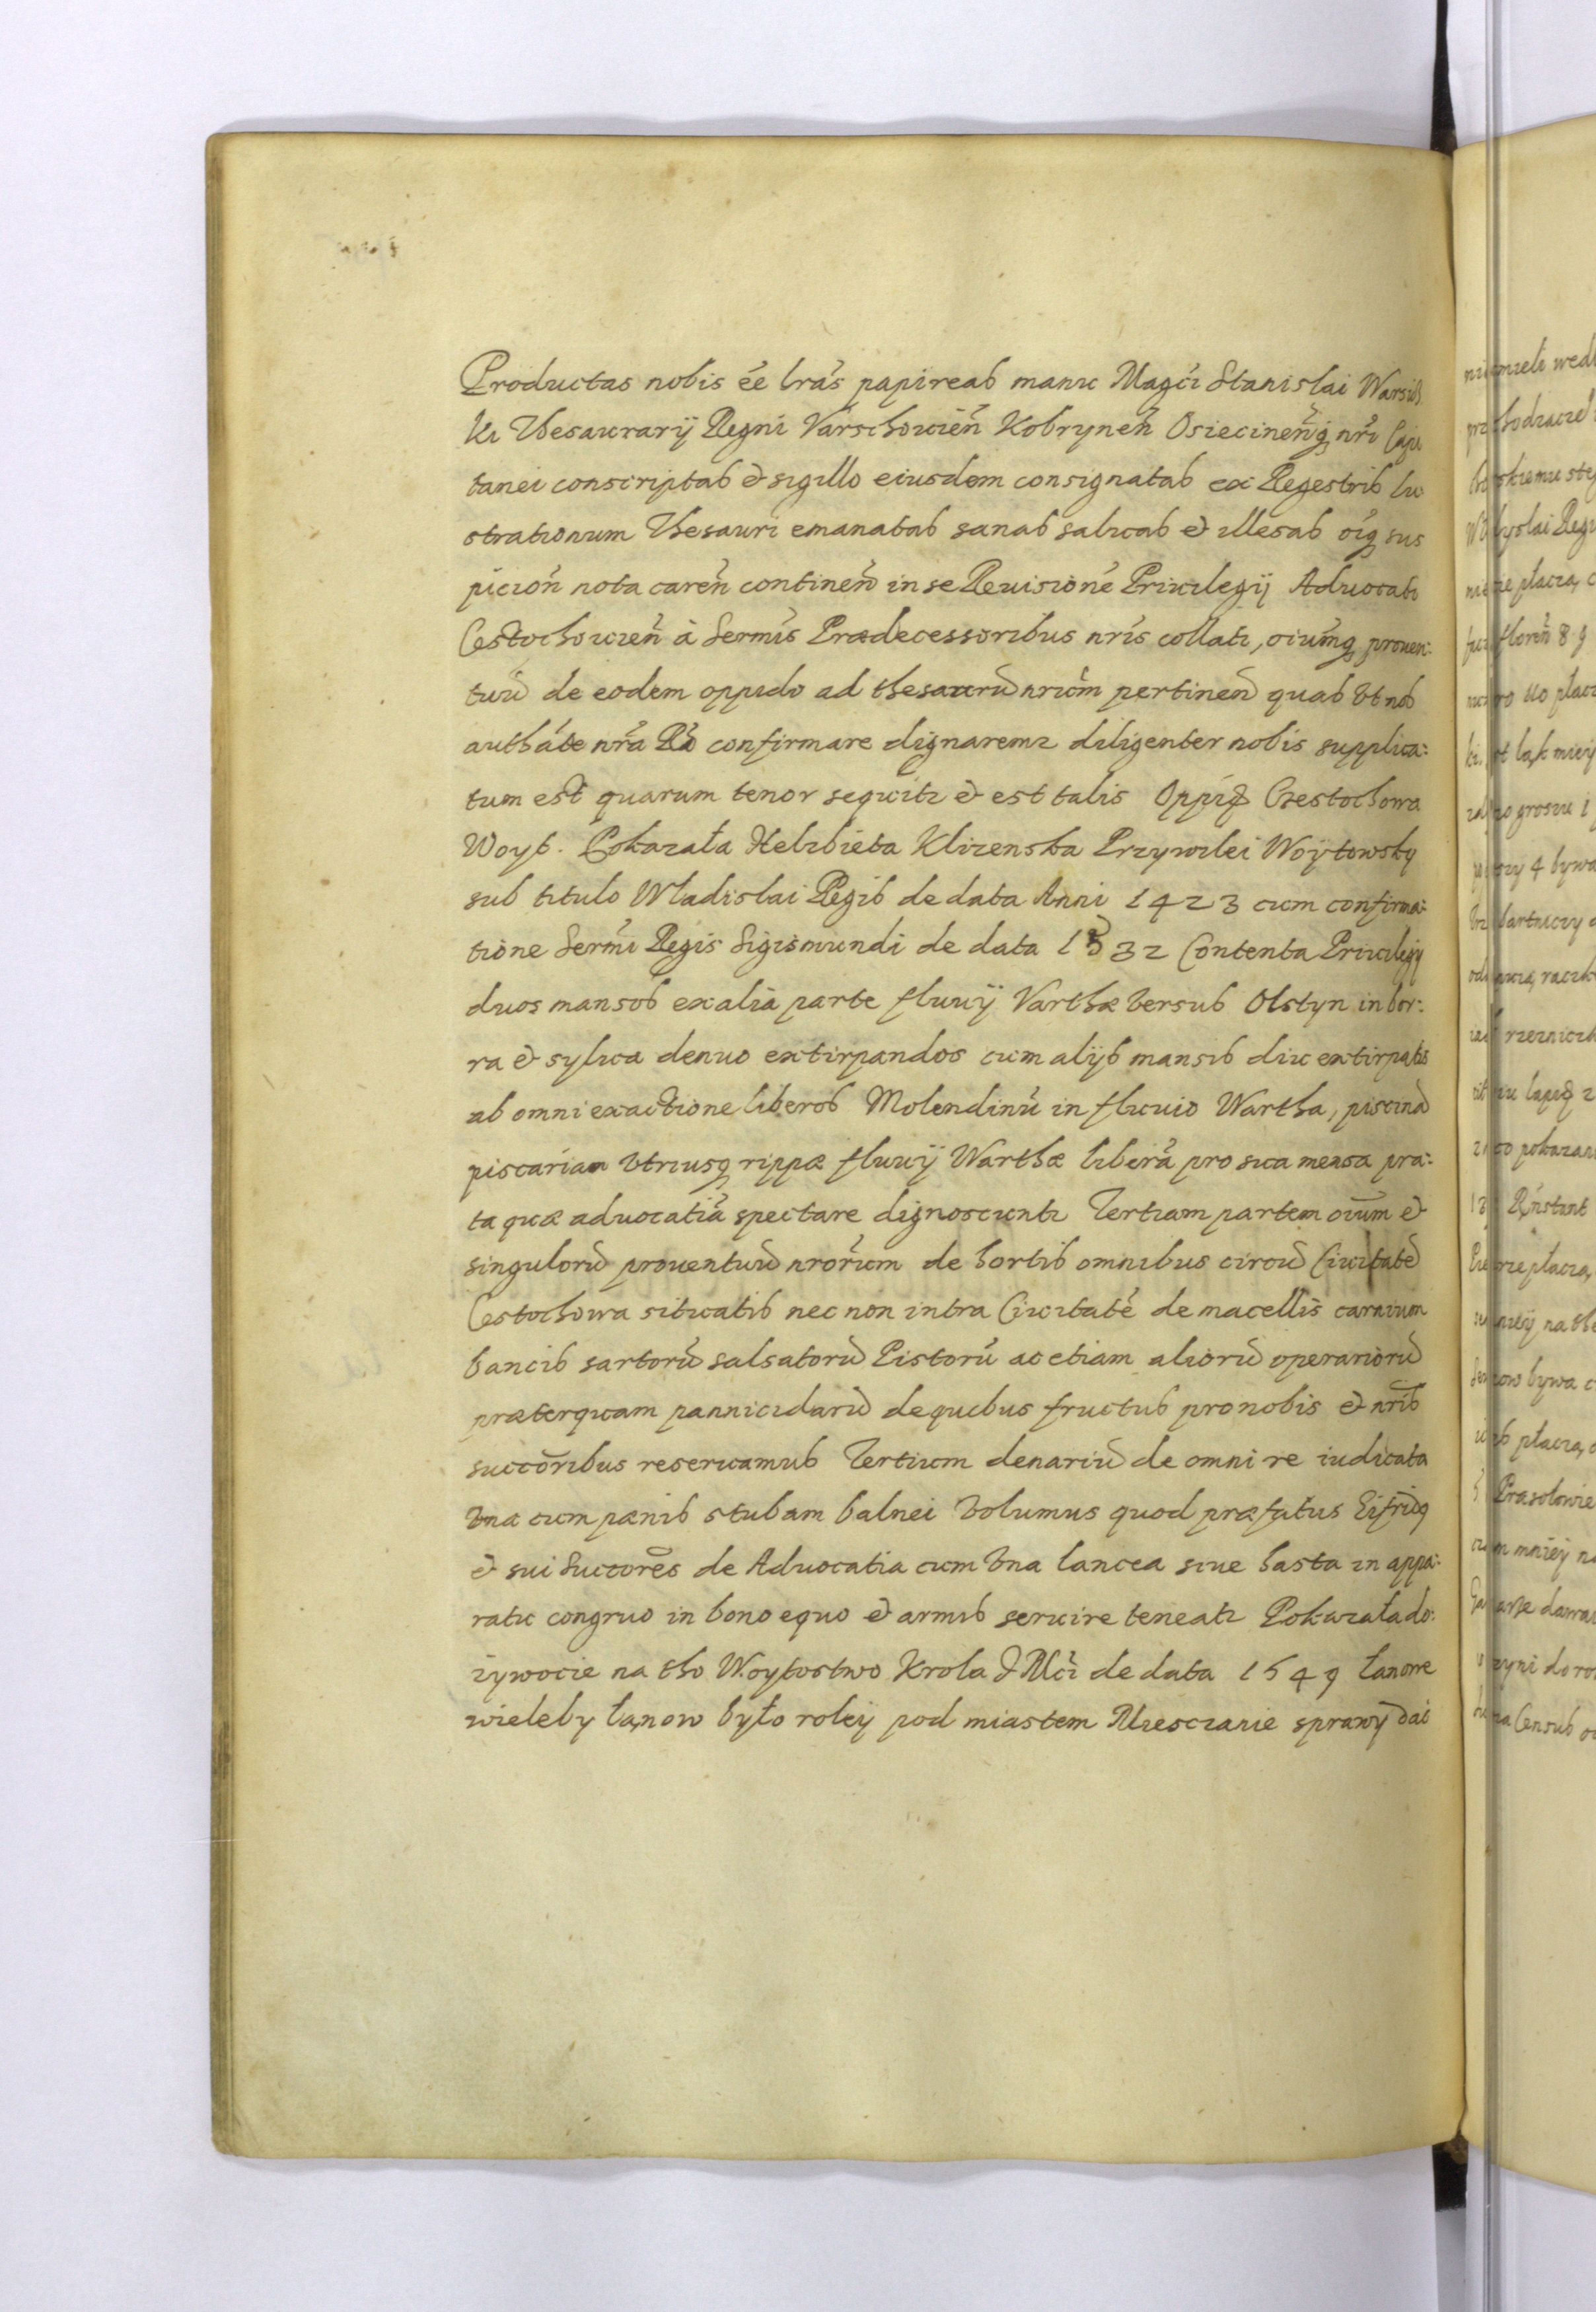 Productas nobis eé lrás papireas manu Magci Stanislai Warsic
ki Thesaurarÿ Regni Varschouień Kobryneń Osiecineńq nrí Capi
tanei conscriptas & sigillo eiusdem consignatas ex Regestris lu
strationum Thesauri emanatas sanas saluas & illesas oíq sus
picioń nota careń continen in se Reuisioné Priuilegij Aduocati
Cestochouień à Sermís Prædecessoribus nrís collati, oiumq prouen:
tuu de eodem oppido ad thesauru nrum pertinen quas vt nos
autháte nrá Ra confirmare dignaremr diligenter nobis supplica:
tum est quarum tenor sequitr & est talis Oppid Czestochowa
Woyt. Pokazała Helzbieta Klizenska Przywilei Woÿtowsky
sub titulo Wladislai Regis de data Anni 1423 cum confirma:
tione Sermi Regis Sigismundi de data 1532 Contenta Priuilegij
duos mansos ex alia parte fluuÿ Varthæ versus Olstyn in bor:
ra & sylua denuo extirpandos cum alijs mansis diu extirpatis
ab omni exactione liberos Molendinú in fluuio Wartha, piscina
piscariam vtriusq rippæ fluuÿ Warthæ liberá pro sua mensa pra:
ta quæ aduocatiá spectare dignoscuntr Tertiam partem oium &
singuloru prouentuu nrorum de hortis omnibus circu Ciuitate
Cestochowa situatis nec non intra Ciuitaté de macellis carnium
bancis sartoru salsatoru Pistorú ac etiam alioru operarioru
præterquam pannicidaru de quibus fructus pro nobis & nris
succoribus reseruamus Tertium denariu de omni re iudicata
vna cum pænis stubam balnei volumus quod præfatus
& sui Succores de Aduocatia cum vna lancea siue hasta in appa:
ratu congruo in bono equo & armis seruire teneatr Pokazała do:
żywocie na tho Woytostwo Krola J Mci de data 1549 łanowe
wieleby łąnow było roleÿ pod miastem Miesczanie sprawÿ dać